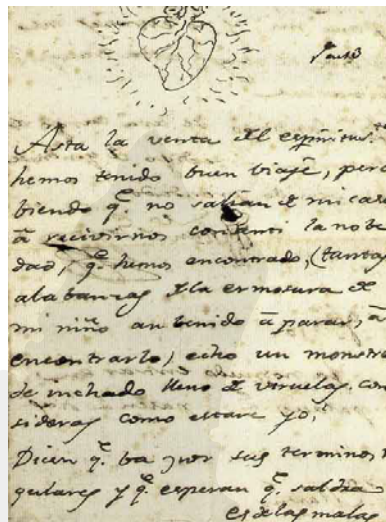 Asta la venta del espiritu
hemos tenido buen viaje, pero
biendo q.e no salian de mi casa
â recivirnos conosenti la nobe
dad, q.e hemos encontrado, (tantas
alabanzas de la ermosura de
mi niño an benido â parar, â
encontrarlo) echo un monstruo
de inchado lleno de viruelas. con
sideras como estare yo,
Dicen q.e ba por sus terminos re
gulares y q.e esperan q.e saldra
es de las malas